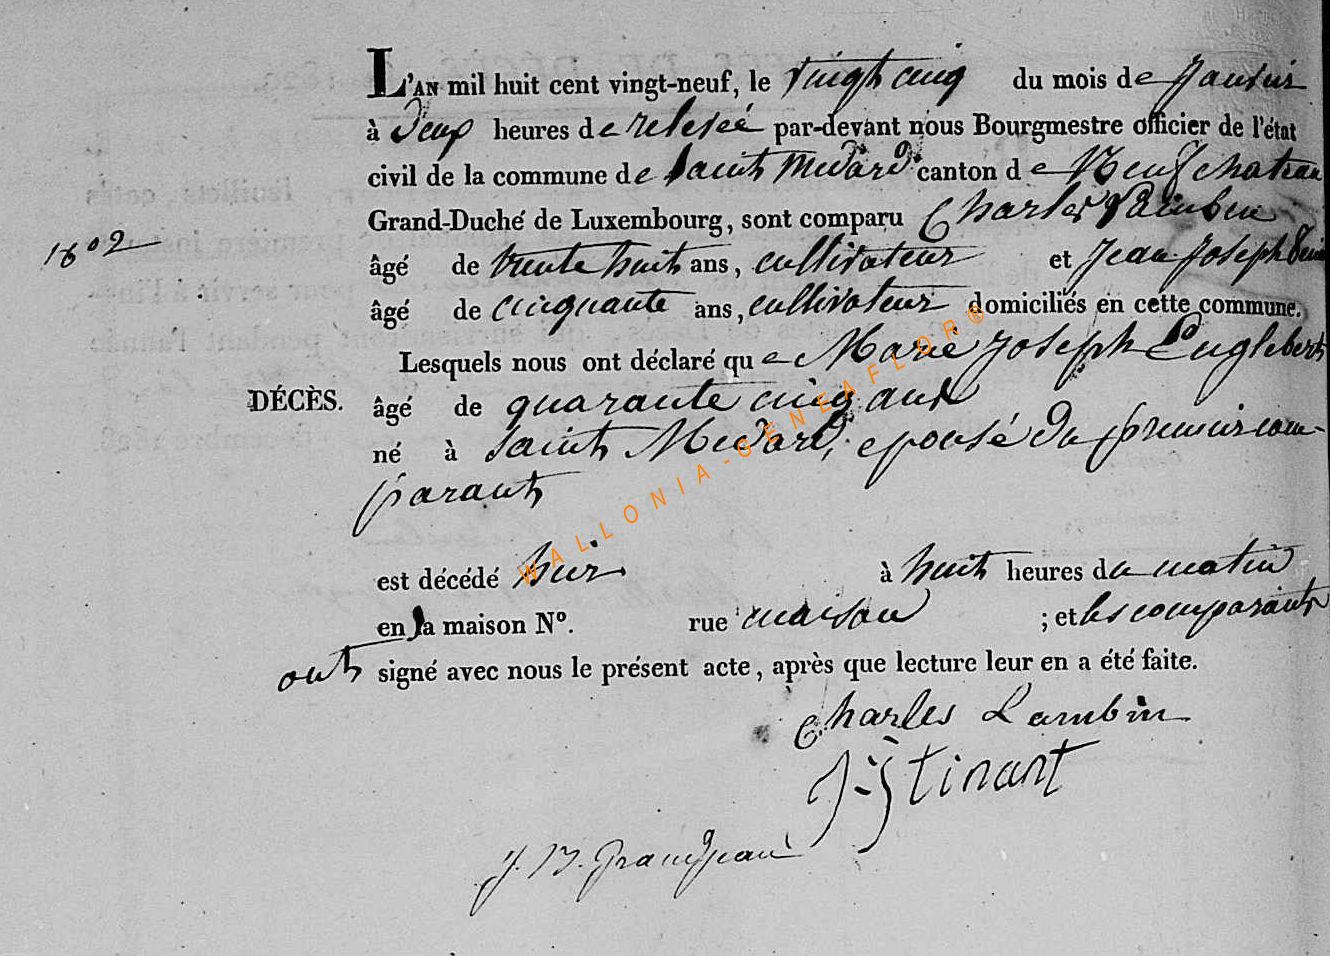 L'AN mil huit cent vingt-neuf, le vingt cinq du mois de Janvier
à deux heures de relevée par-devant nous Bourgmestre officier de l'état
civil de la commune de Saint Medard canton de Neufchateau
Grand-Duché de Luxembourg, sont comparu Charles Lambin
1802
âgé de trente huit ans, cultivateur et Jean Joseph
âgé de cinquante ans, cultivateur domiciliés en cette commune.
Lesquels nous ont déclaré que Marie Joseph Englebert
DÉCÈS. âgé de quarante cinq ans
né à Saint Medard, epouse du premier com-
parant
est décédé hier à huit heures du matin
en sa maison N°. rue maison ; et les comparants
ont signé avec nous le présent acte, après que lecture leur en a été faite.
Charles Lambin
J-J tinant
J. B. Grandjean
WALLONIA-GENEAFLOR®